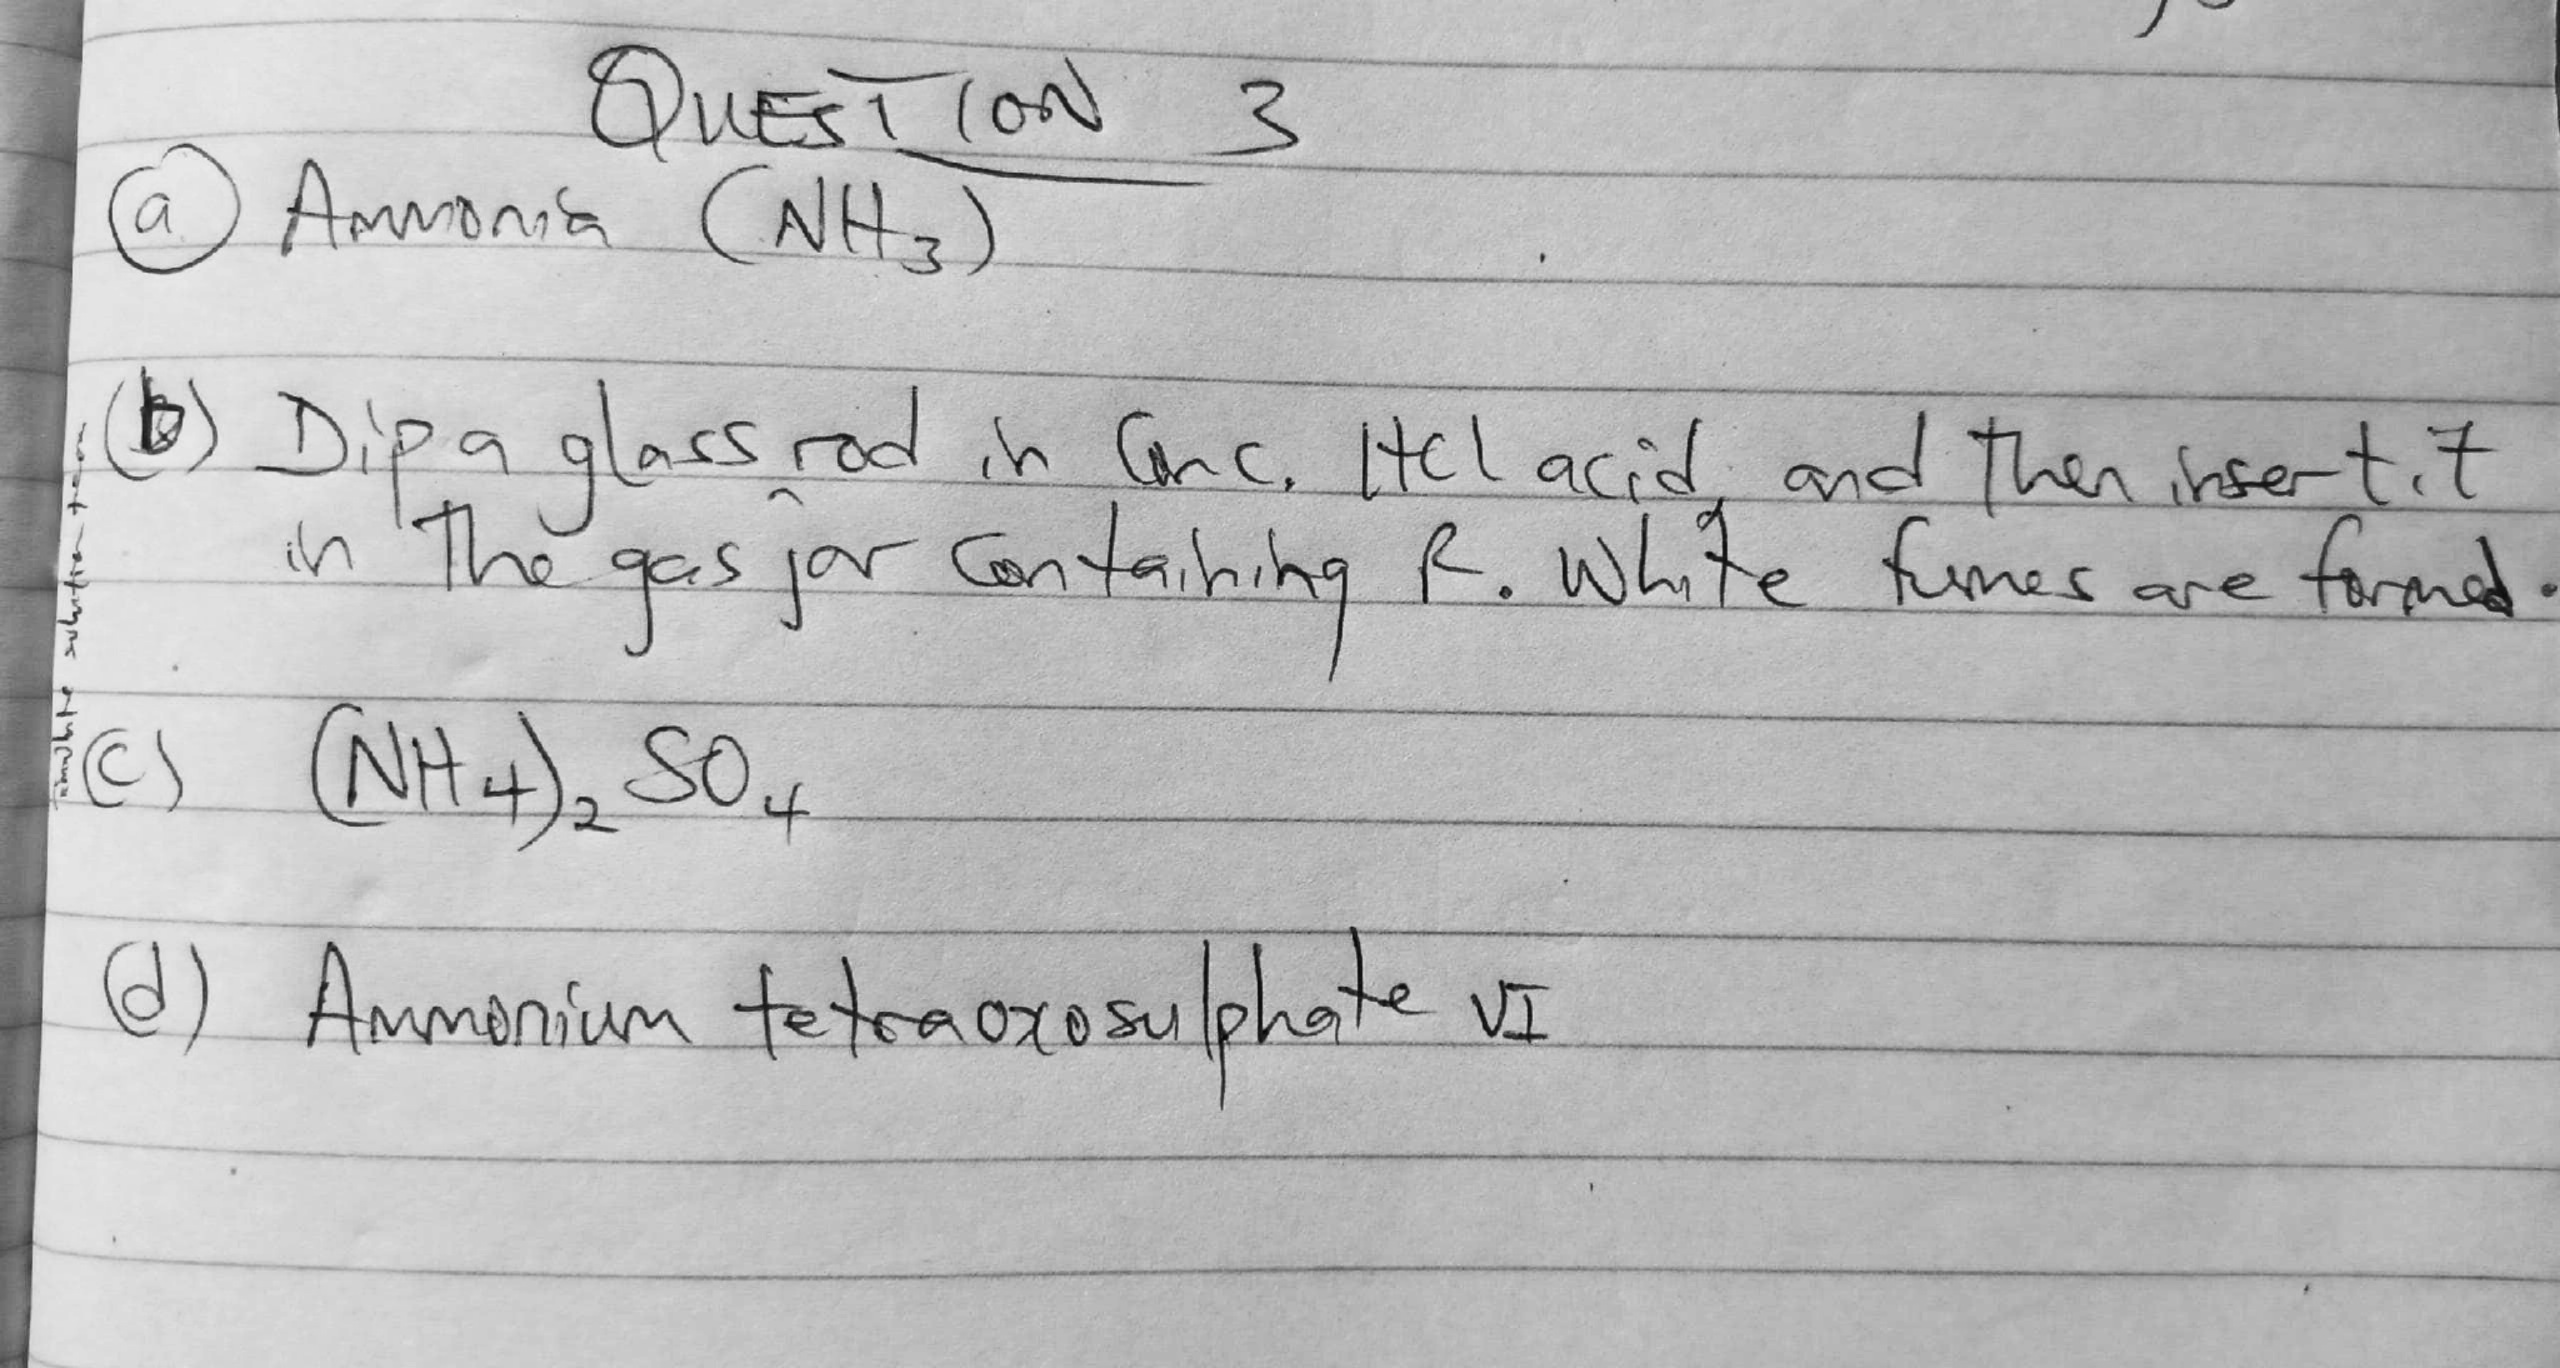 QUESTION 3
(a) Ammonia (NH₃)
(b) Dip a glass rod in Conc. HCl acid, and then insert it
in the gas jar containing R. White fumes are formed.
(c) (NH4)₂ SO₄
(d) Ammonium tetraoxosulphate VI
solution team